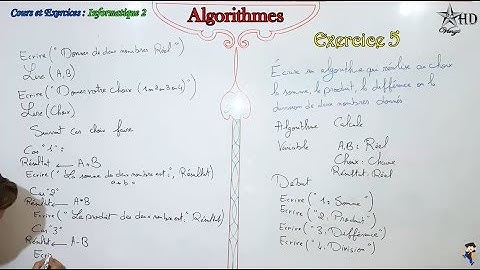 Cours et Exercices : Informatique 2
Algorithmes
HD
Exercice 5
Ecrire (" Donner de deux nombres Réel ")
Lire (A,B)
Ecrire (" Donner votre choix (1 ou 2 ou 3 ou 4)")
Lire (choix)
Suivant cas choix faire
Cas "1" :
Résultat ← A+B
Ecrire (" La somme de deux nombre est :", Résultat)
a+b =
Cas "2"
Résultat ← A*B
Ecrire (" Le produit des deux nombre est :", Résultat)
Cas "3"
Résultat ← A-B
Ecri
Écrire un algorithme qui réalise au choix
la somme, le produit, la différence ou la
division de deux nombres donnés.
Algorithme Calcule
Variable A,B : Réel
Choix : Chaine
Résultat : Réel
Début
Ecrire ("1: Somme")
Ecrire ("2: Produit")
Ecrire ("3: Différence")
Ecrire ("4: Division")